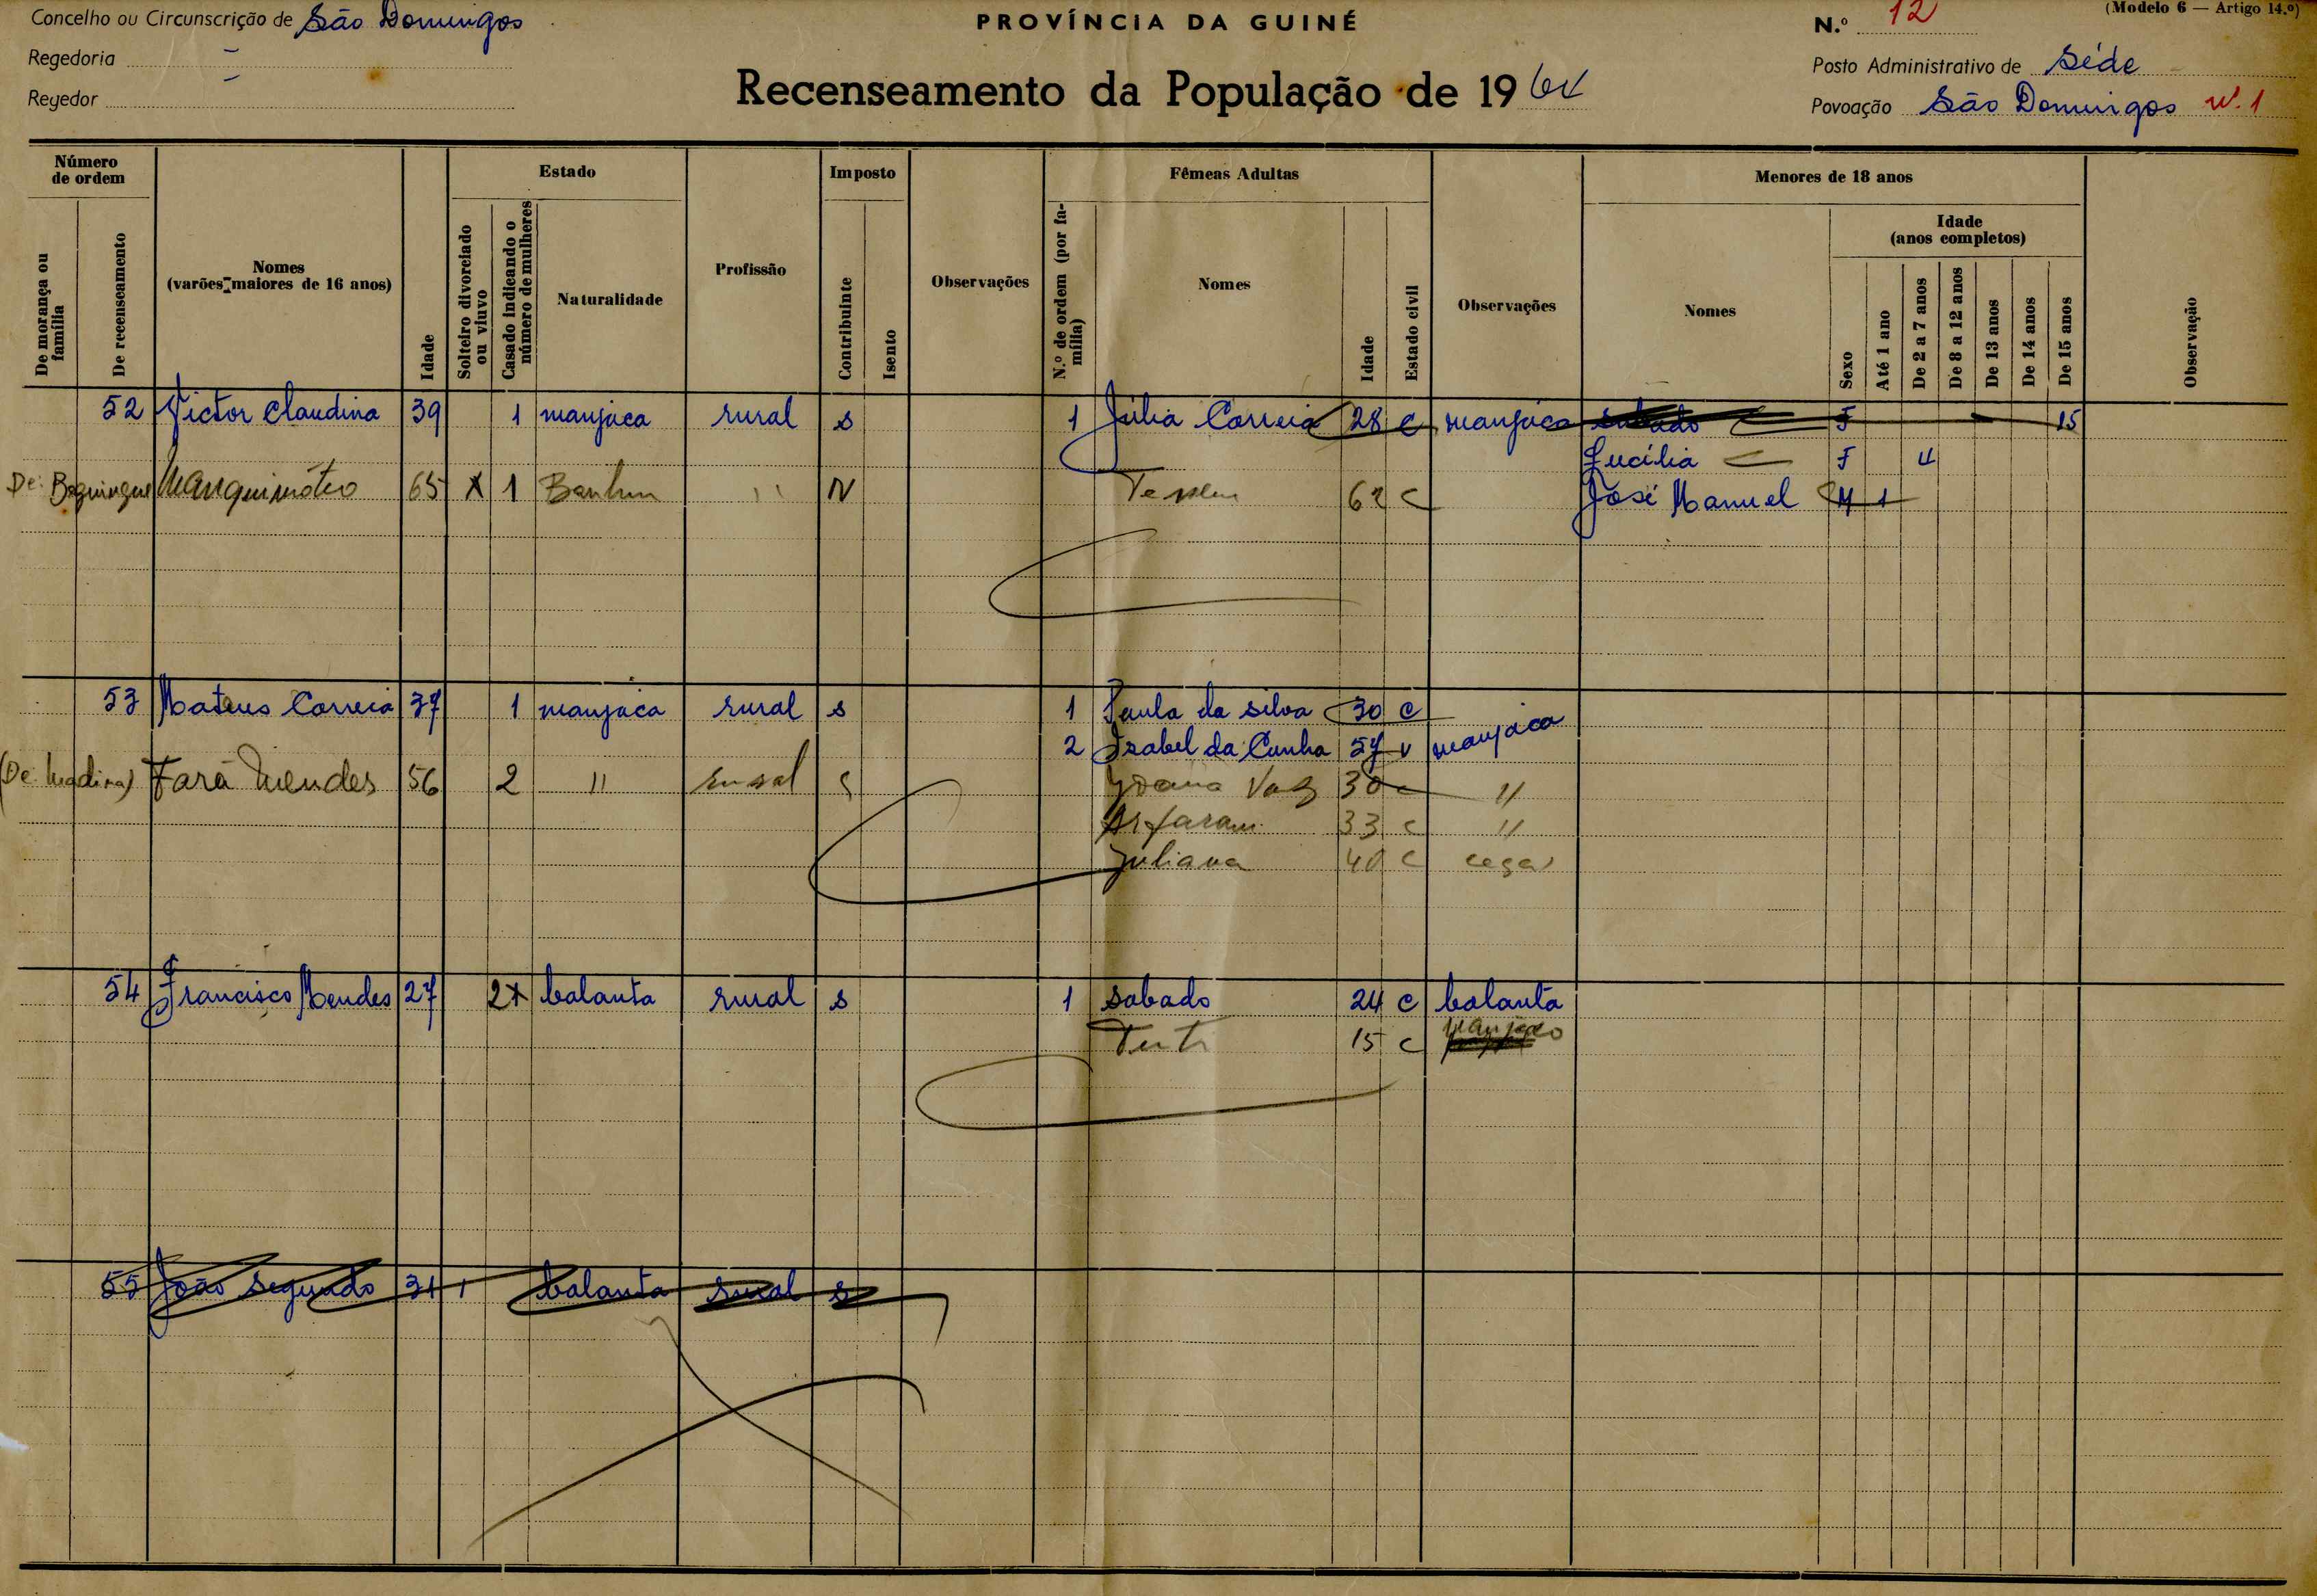 Concelho ou Circunscrição de São Domingos
PROVÍNCIA DA GUINÉ
N.º 12
(Modelo 6 — Artigo 14.º)
Regedoria
Posto Administrativo de Séde
Regedor
Recenseamento da População de 1964
Povoação São Domingos Nº. 1
Número de ordem
De morança ou família
De recenseamento
Nomes
(varões maiores de 16 anos)
Idade
Estado
Solteiro divorciado ou viuvo
Casado indicando o número de mulheres
Naturalidade
Profissão
Imposto
Contribuinte
Isento
Observações
Fêmeas Adultas
N.º de ordem (por família)
Nomes
Idade
Estado civil
Observações
Menores de 18 anos
Nomes
Sexo
Idade
(anos completos)
Até 1 ano
De 2 a 7 anos
De 8 a 12 anos
De 13 anos
De 14 anos
De 15 anos
Observação
52 Victor Claudina 39 1 manjaca rural s 1 Júlia Correia 28 c manjaca sabado F 15
Lucília F 4
65 X 1 Banhun " N 62 c José Manuel M 1
53 Mateus Correia 37 1 manjaca rural s 1 Paula da silva 30 c
2 Izabel da Cunha 57 v manjaca
(De Madina) Fará Mendes 56 2 " rural s Joana Vaz 30 c "
33 c "
Juliana 40 c cega
54 Francisco Mendes 27 2 x balanta rural s 1 sabado 24 c balanta
15 c manjaco
55 João Segundo 31 1 balanta rural s